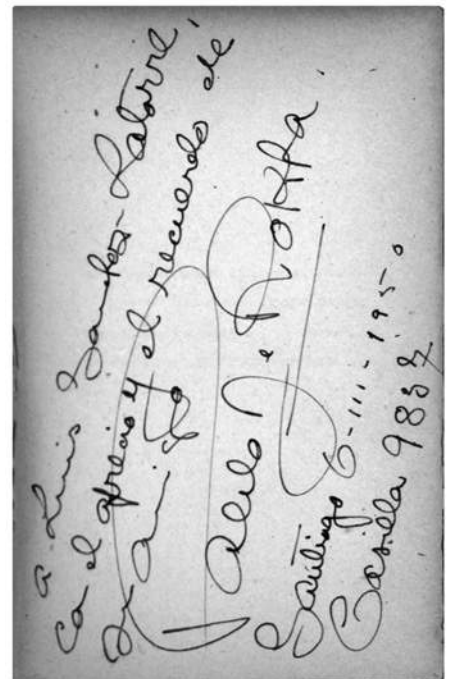 a Luis Sanchez-Latorre,
con el aprecio y el recuerdo de
su amigo
Pablo de Rokha
Santiago 6-III-1950
Casilla 9832